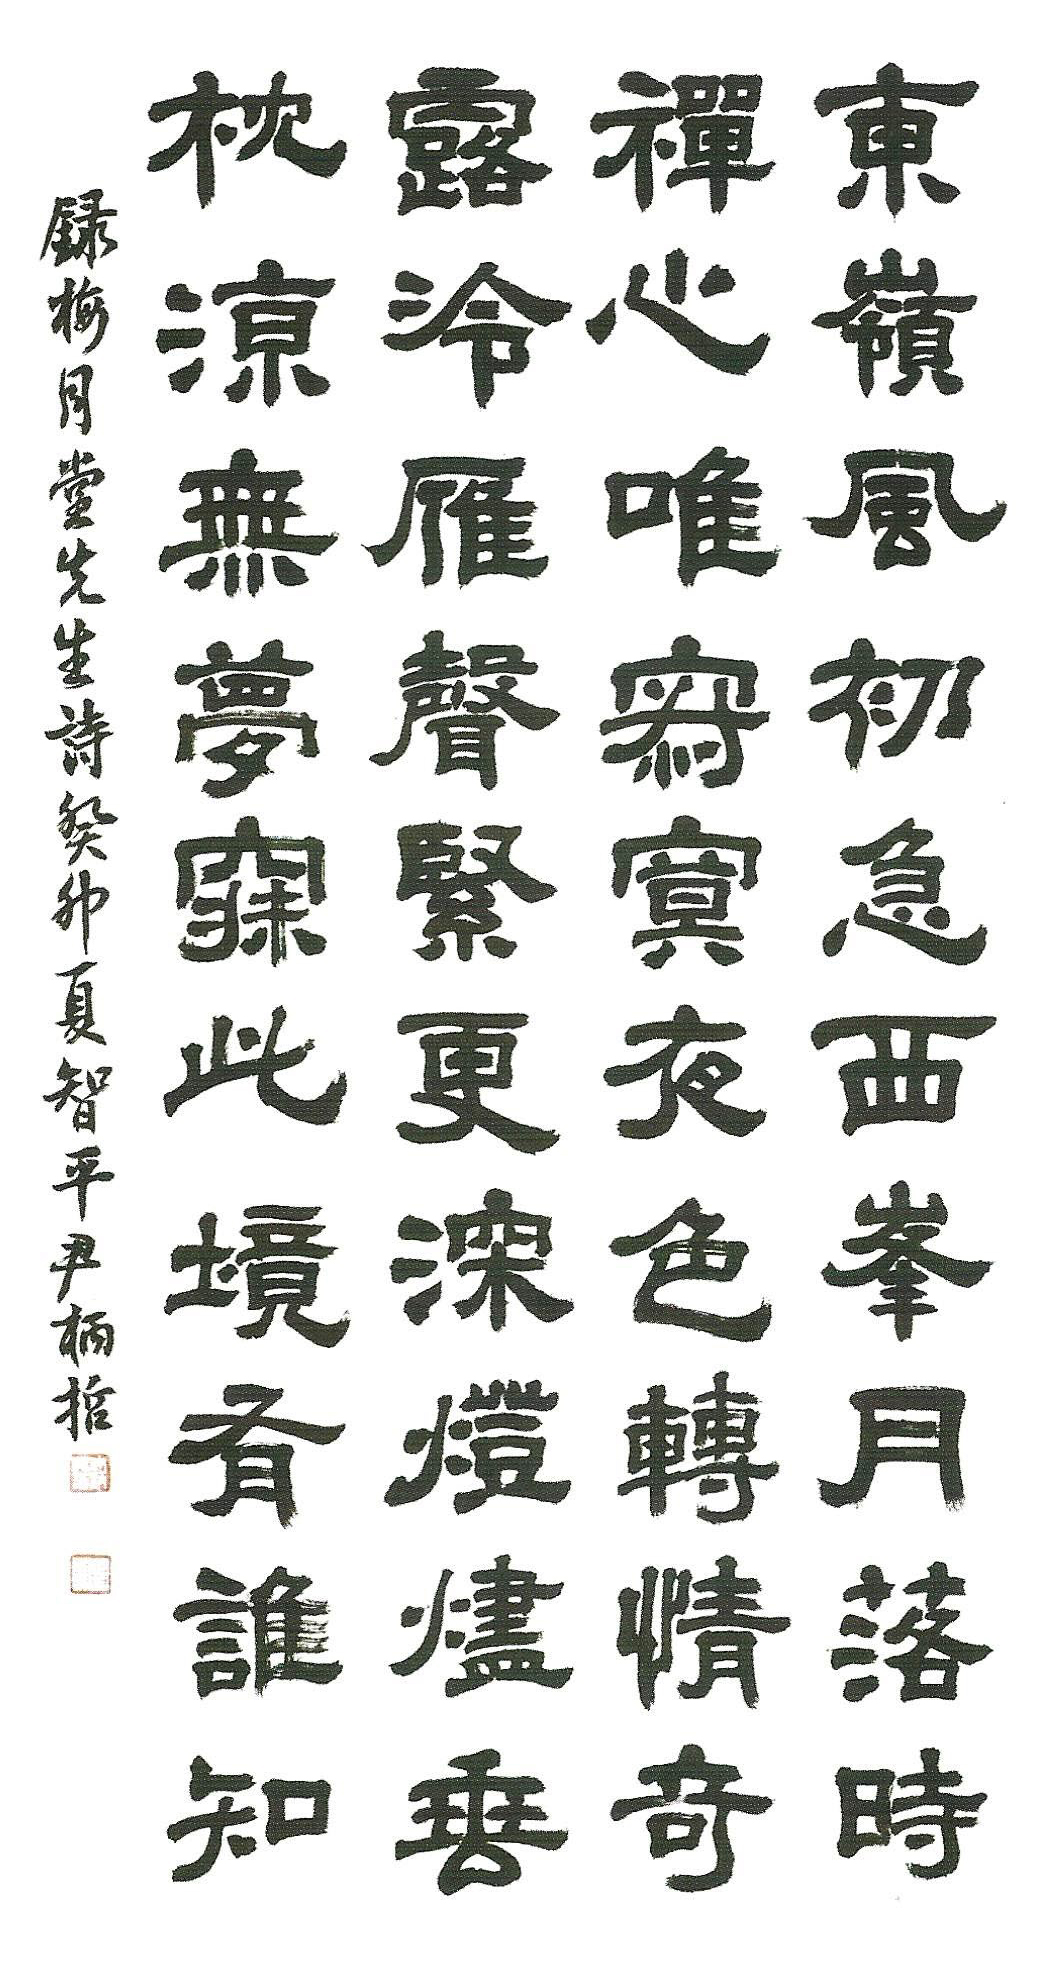 東嶺風初急西峯月落時
禪心唯寂寞夜色轉情奇
露冷雁聲緊更深燈燼垂
枕涼無夢寐此境有誰知
録梅月堂先生詩癸卯夏智平尹柄哲